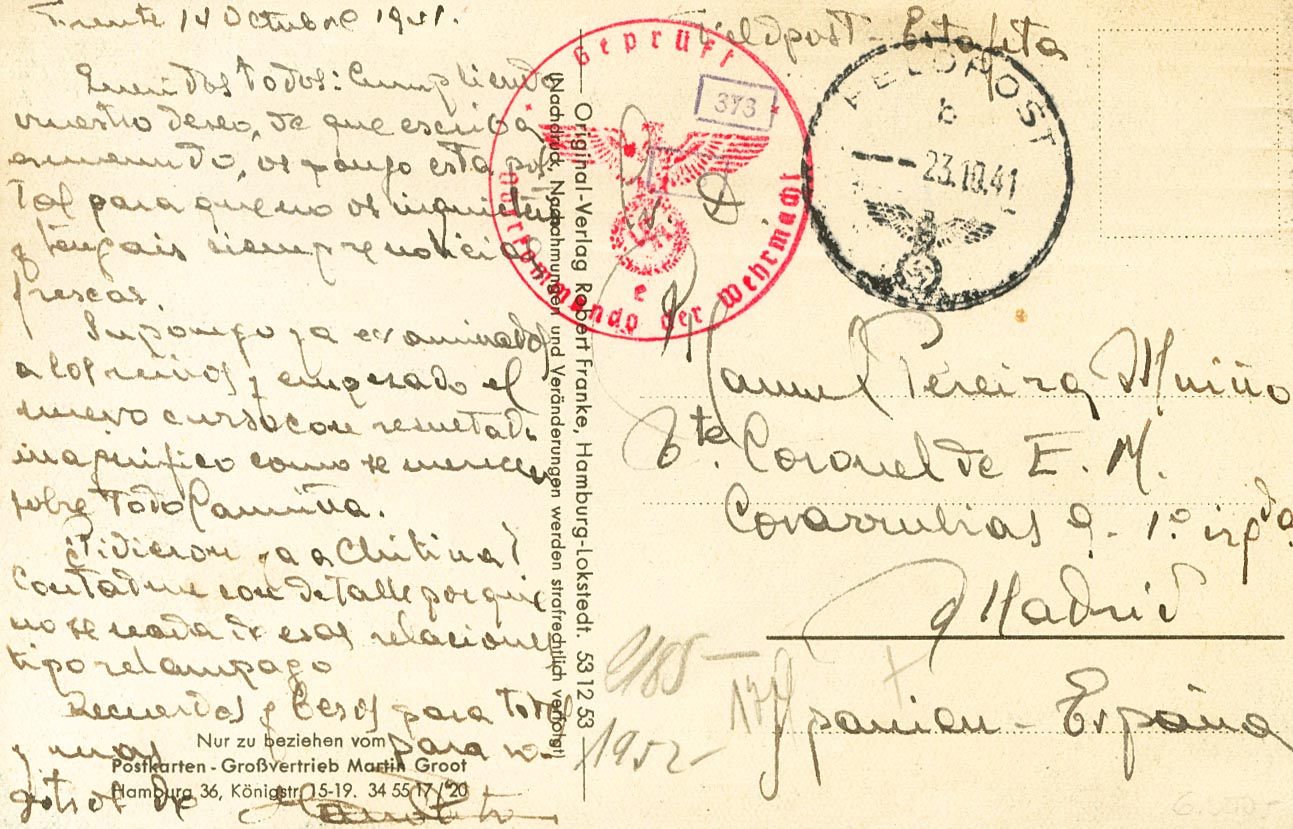 Frente 14 Octubre 1941.
Queridos todos: Cumpliendo
vuestro deseo, de que escriba
a menudo, os pongo esta pos
tal para que no os inquieteis
y tengais siempre noticias
frescas.
Supongo ya examinados
a los niños y empezado el
nuevo curso con resultado
magnifico como se merecen
sobre todo
¿Pidieron ya a Chitina?
Contadme con detalle porque
no se nada de esas relaciones
tipo relampago
Recuerdos y besos para todos
y unas para vo-
sotros de
Nur zu beziehen vom
Postkarten-Großvertrieb Martin Groot
Hamburg 36, Königstr. 15-19. 34 55 17/20
Original-Verlag Robert Franke, Hamburg-Lokstedt. 53 12 53
(Nachdruck, Nachahmungen und Veränderungen werden strafrechtlich verfolgt)
Geprüft
Oberkommando der Wehrmacht
e
373
Feldpost - Estafeta
FELDPOST
b
23.10.41
Manuel Pereira Muiño
Tte. Coronel de E. M.
Covarrubias 9 - 1º izqda
Madrid
Spanien - España
1952-
6.000-